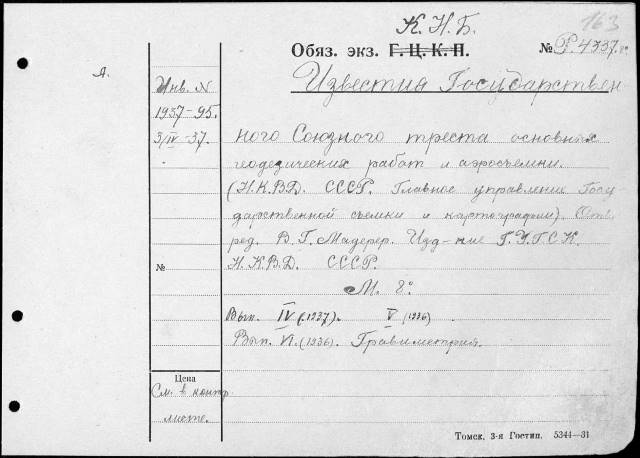 К. Н. Б.
163
Обяз. экз. Г. Ц. К. П. № Р. 4337.
Л.
Инв. N
1937-95.
3/IV-37.
Известия Государствен
ного Союзного треста основных
геодезических работ и аэросъемки.
(Н.К.В.Д. СССР. Главное управление Госу-
дарственной съемки и картографии). Отв.
ред. В. Г. Мадерер. Изд-ние Г.У.Г.С.К.
Н.К.В.Д. СССР.
№
М. 8°
Вып. IV (1937). V (1936)
Вып. VI. (1936). Гравиметрия.
Цена
См. в контр.
листе.
Томск, 3-я Гостип. 5344—31